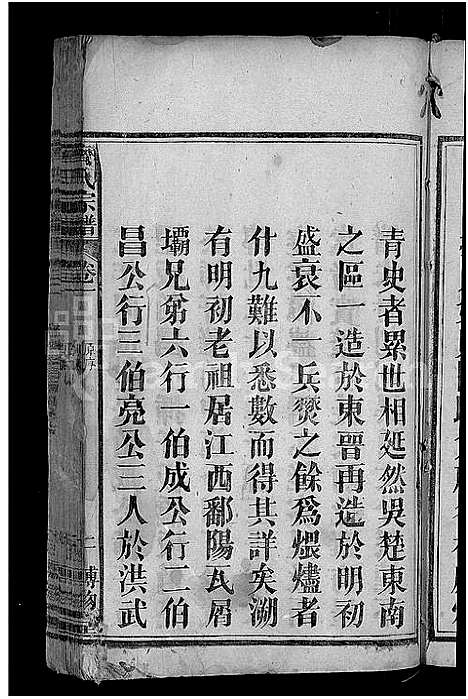 青史者累世相延然吳楚東南
之區一造於東晉再造於明初
盛衰不一兵燹之餘爲煨燼者
什九難以悉數而得其詳矣溯
有明初老祖居江西鄱陽瓦屑
壩兄弟六行一伯成公行二伯
昌公行三伯亮公三人於洪武
氏宗譜
卷
二